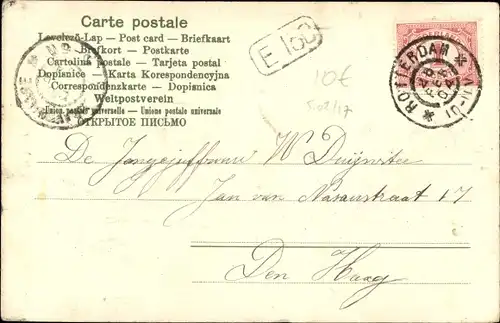 Carte postale
Levelező-Lap — Post card — Briefkaart
Brefkort — Postkarte
Cartolina postale — Tarjeta postal
Dopisnice — Karta Korespondencyjna
Correspondenzkarte — Dopisnica
Weltpostverein
Union postale universelle — Unione postale universale
ОТКРЫТОЕ ПИСЬМО
E 150
10€
ROTTERDAM
De Jongejuffrouw W Duijvitee
Jan van Nassaustraat 17
Den Haag